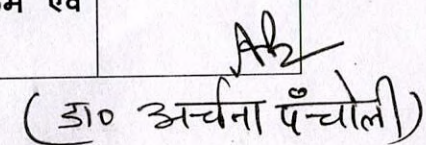 एवं
(डा० अर्चना पँचोली)